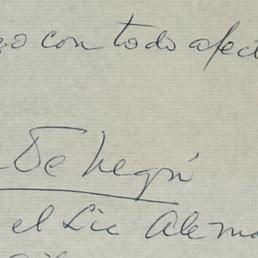 con todo afect
De Negri
el Lic Alema